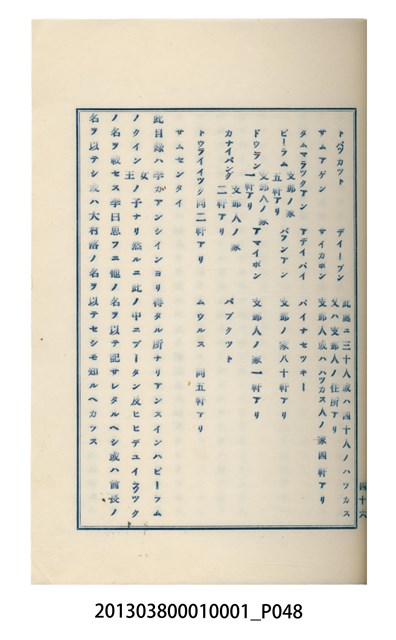 トバカット　デイーブン　此處ニ三十人或ハ四十人ノハツカス
又ハ支那人ノ住所アリ
サムアゲン　サイカボン　支那人或ハハツカス人ノ家四軒アリ
タムマラツクアン　アデイバイ　バイナセツキー
ビーラム　支那ノ家五軒アリ　バフンアン　支那ノ家八十軒アリ
ドウラン　支那人ノ家一軒アリ　アマイボン　支那人ノ家一軒アリ
カナイバング　支那人ノ家二軒アリ　バブクツト
トウライイツク　同二軒アリ　ムウルス　同五軒アリ
サムセンタイ
此目録ハ李がアンシインヨリ得タル所ナリアンスインハビーフム
ノクイン女王ノ子ナリ然ルニ此ノ中ニブータン及ヒヒデユイクツク
ノ名ヲ載セス李曰思フニ他ノ名ヲ以テ記サレタルヘシ或ハ酋長ノ
名ヲ以テシ或ハ大村落ノ名ヲ以テセシモ知ルヘカラス
四十六
201303800010001_P048